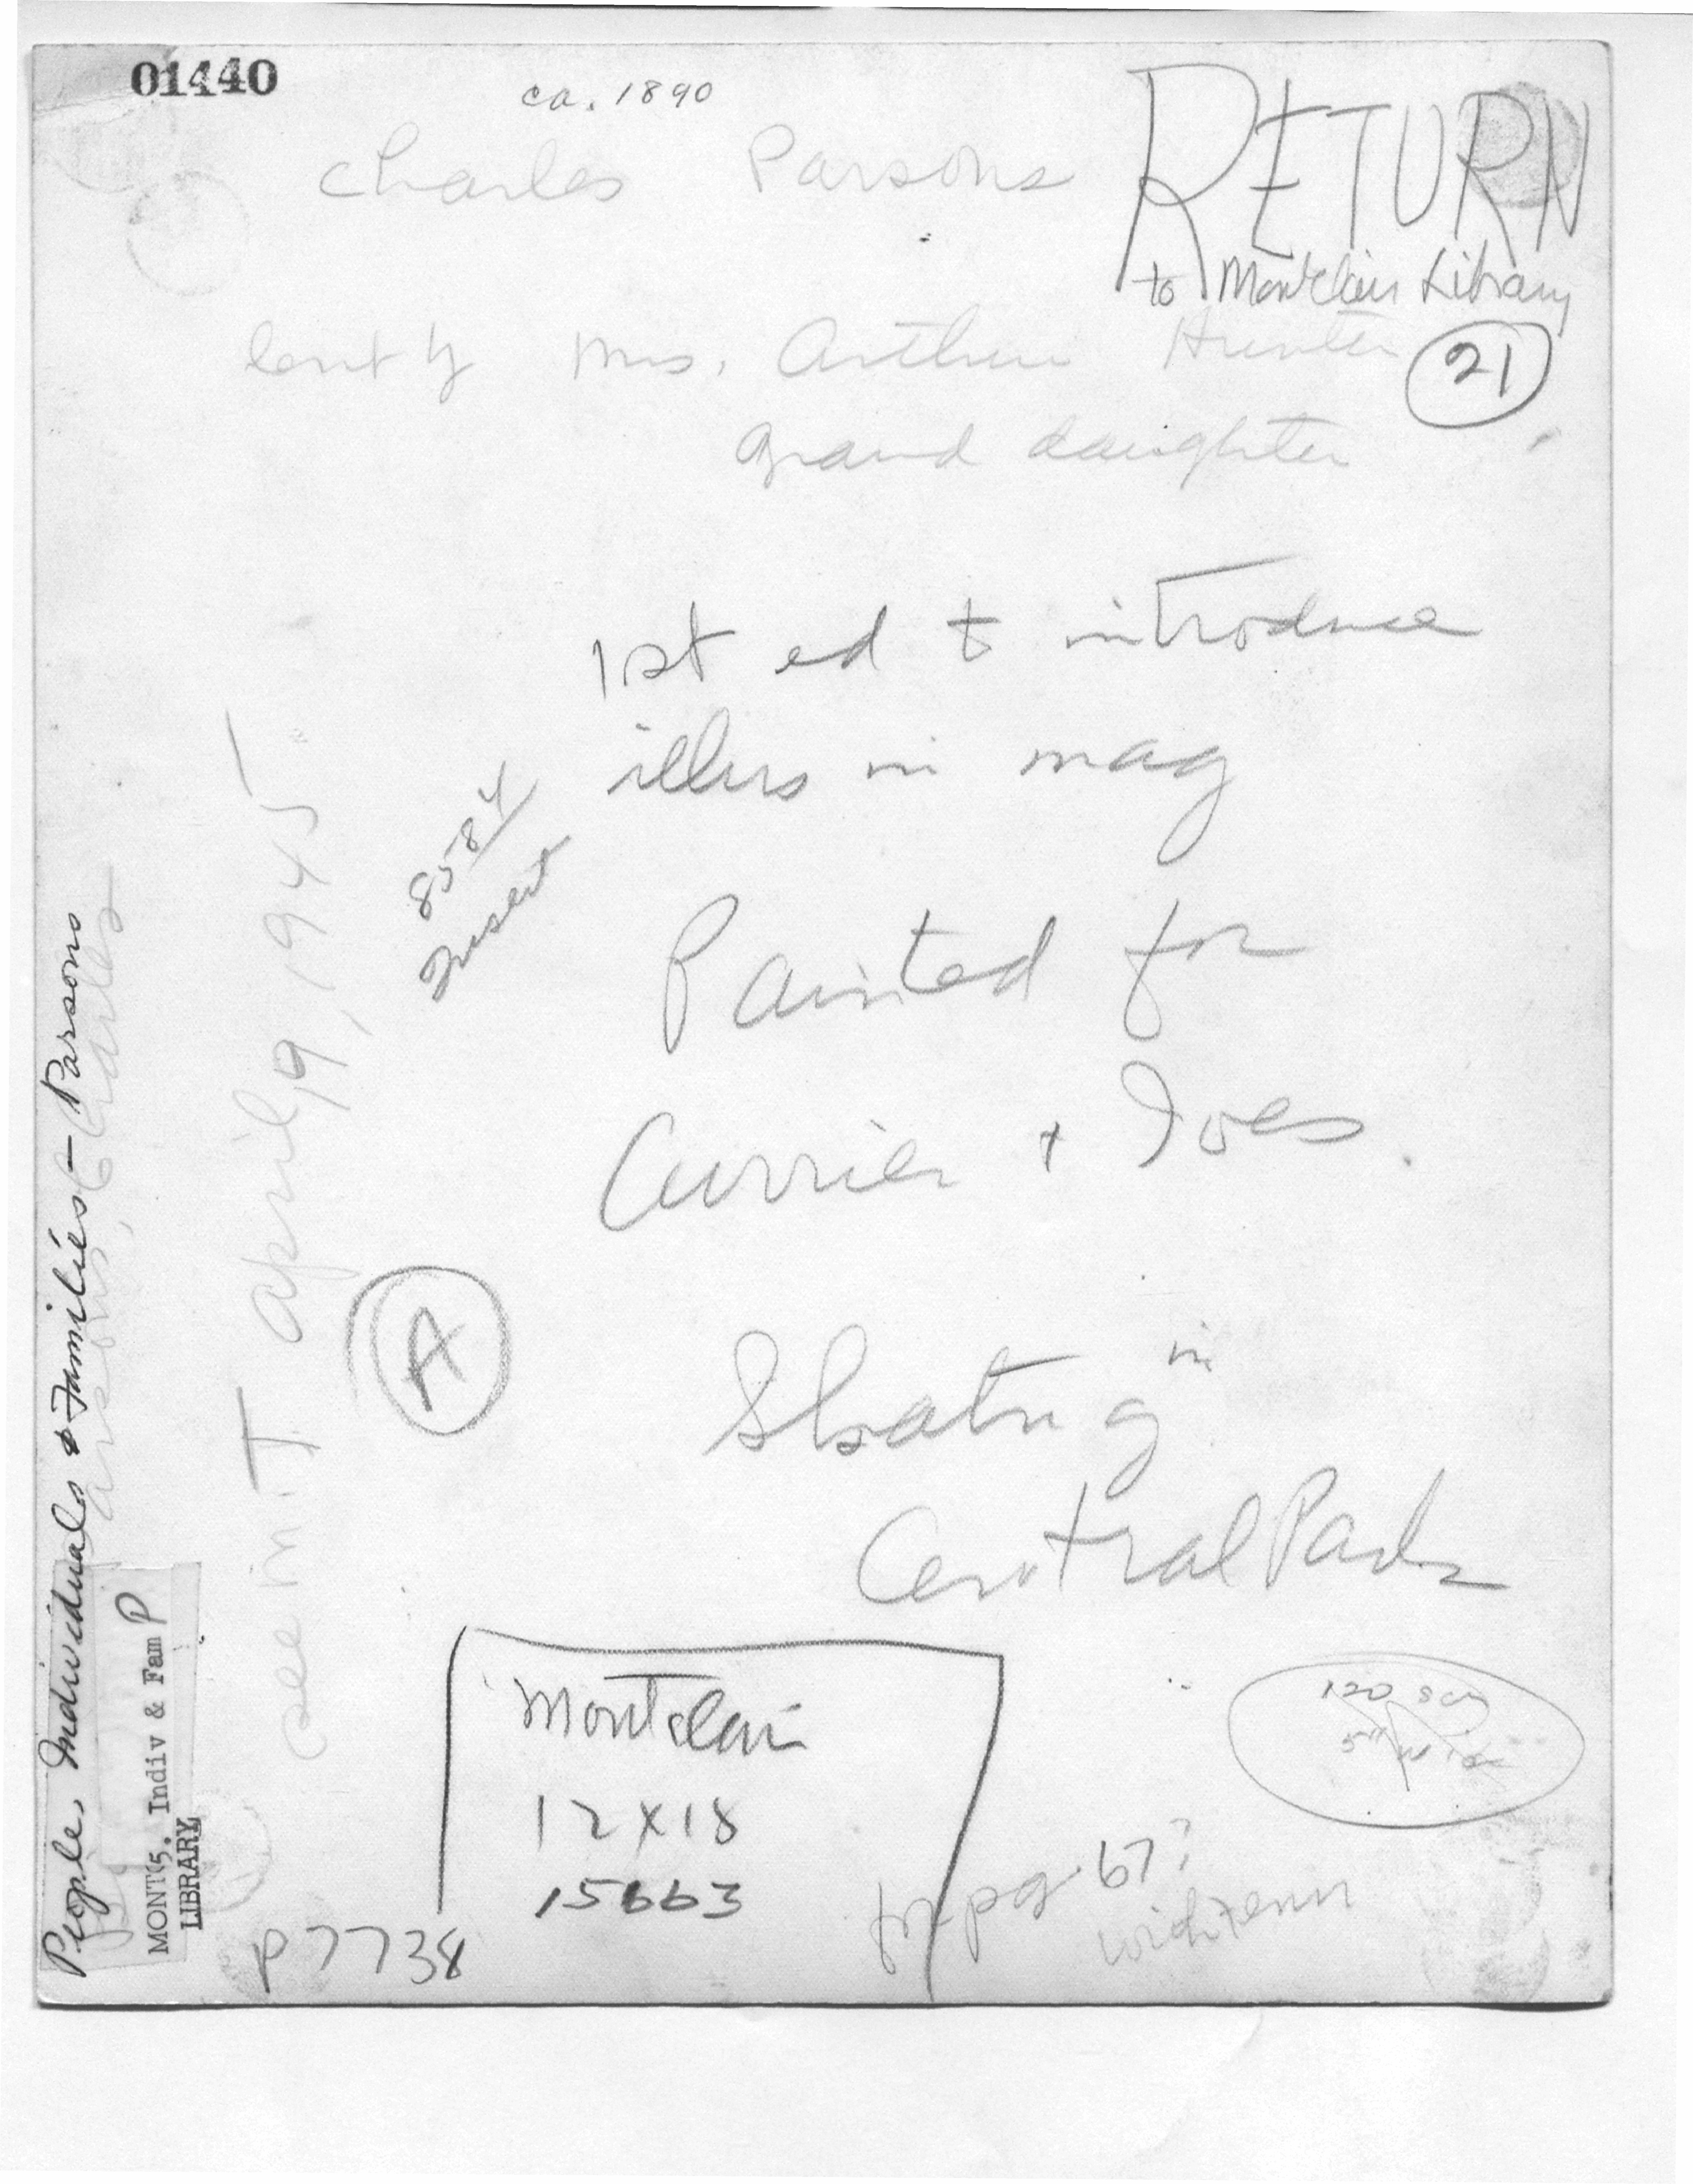 01440
ca. 1890
Charles Parsons
RETURN
to Montclair Library
21
lent by Mrs. Arthur Hunter
Grand daughter
1st ed to introduce
illus in mag
8584
Insert
Painted for
Currier + Ives.
A
Skating in
Central Park
Montclair
12 x 18
15663
120 scr
5" wide
pg. 67?
P7738
People, Individuals & Families - Parsons
Parsons, Charles
MONT. Indiv & Fam P
LIBRARY
see M.T. April 19, 1945